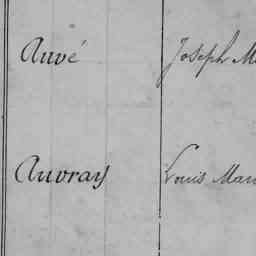 Auvé Joseph M
Auvray Louis Mar